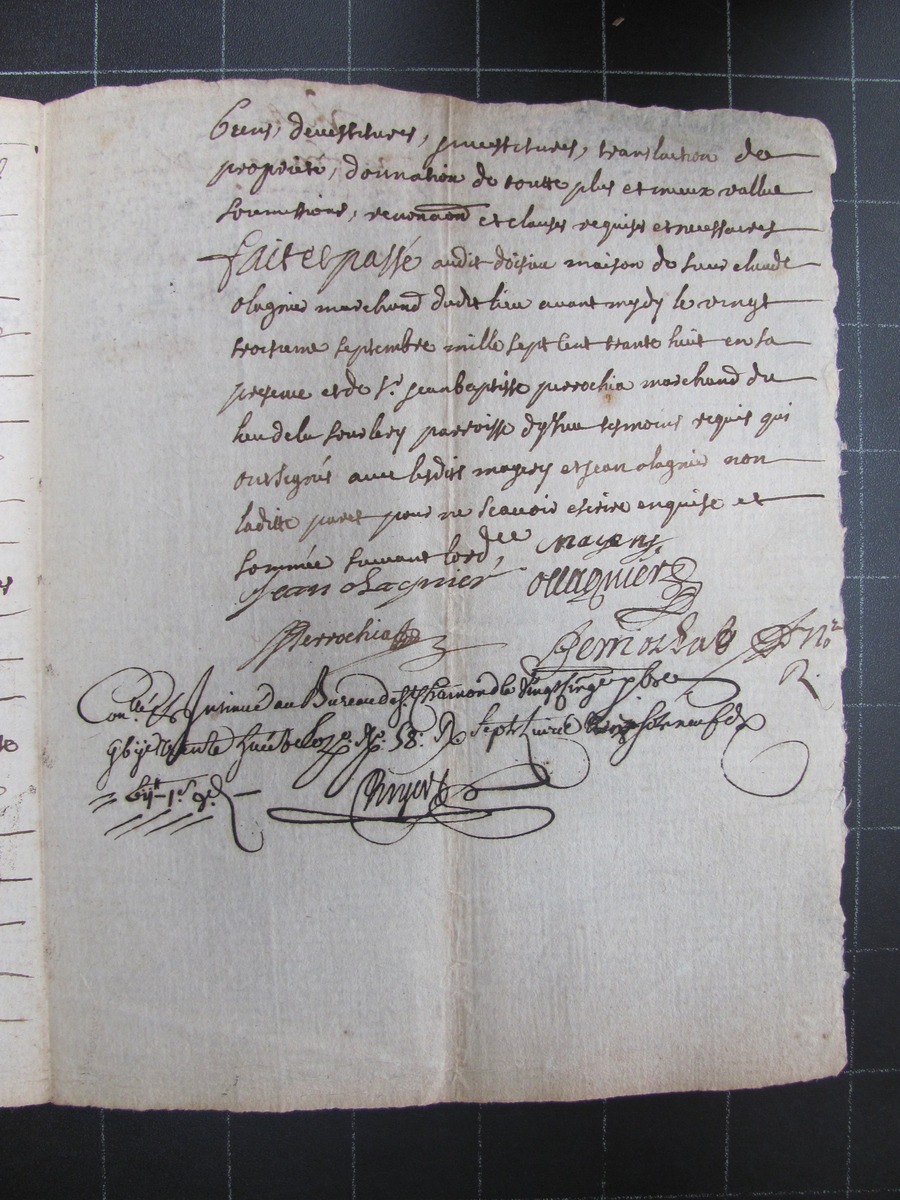 biens, devestitures, jnvestitures, translation de
propriété, donnation de toutte plus et mieux vallue
soumissions, renonaõn et clauses requises et necessaires
fait et passé audit doisieu maison de sieur claude
olagnier marchand dudit lieu avant mydy le vingt
troisieme septembre mille sept cent trante huit en sa
presence et de Sr. jean baptiste perrochia marchand du
lieu de la parroisse temoins requis qui
ont signés avec lesdits mayery et jean olagnier non
laditte pour ne scavoir escrire enquise et
sommée suivant lord,ce
jean olagnier ollagnier
Perrochia No.re
R.
Con.lé & Insinué au Bureau de St. Chamond le Vingt Cinq 7bre
trente huit fo. 58. R. sept livres